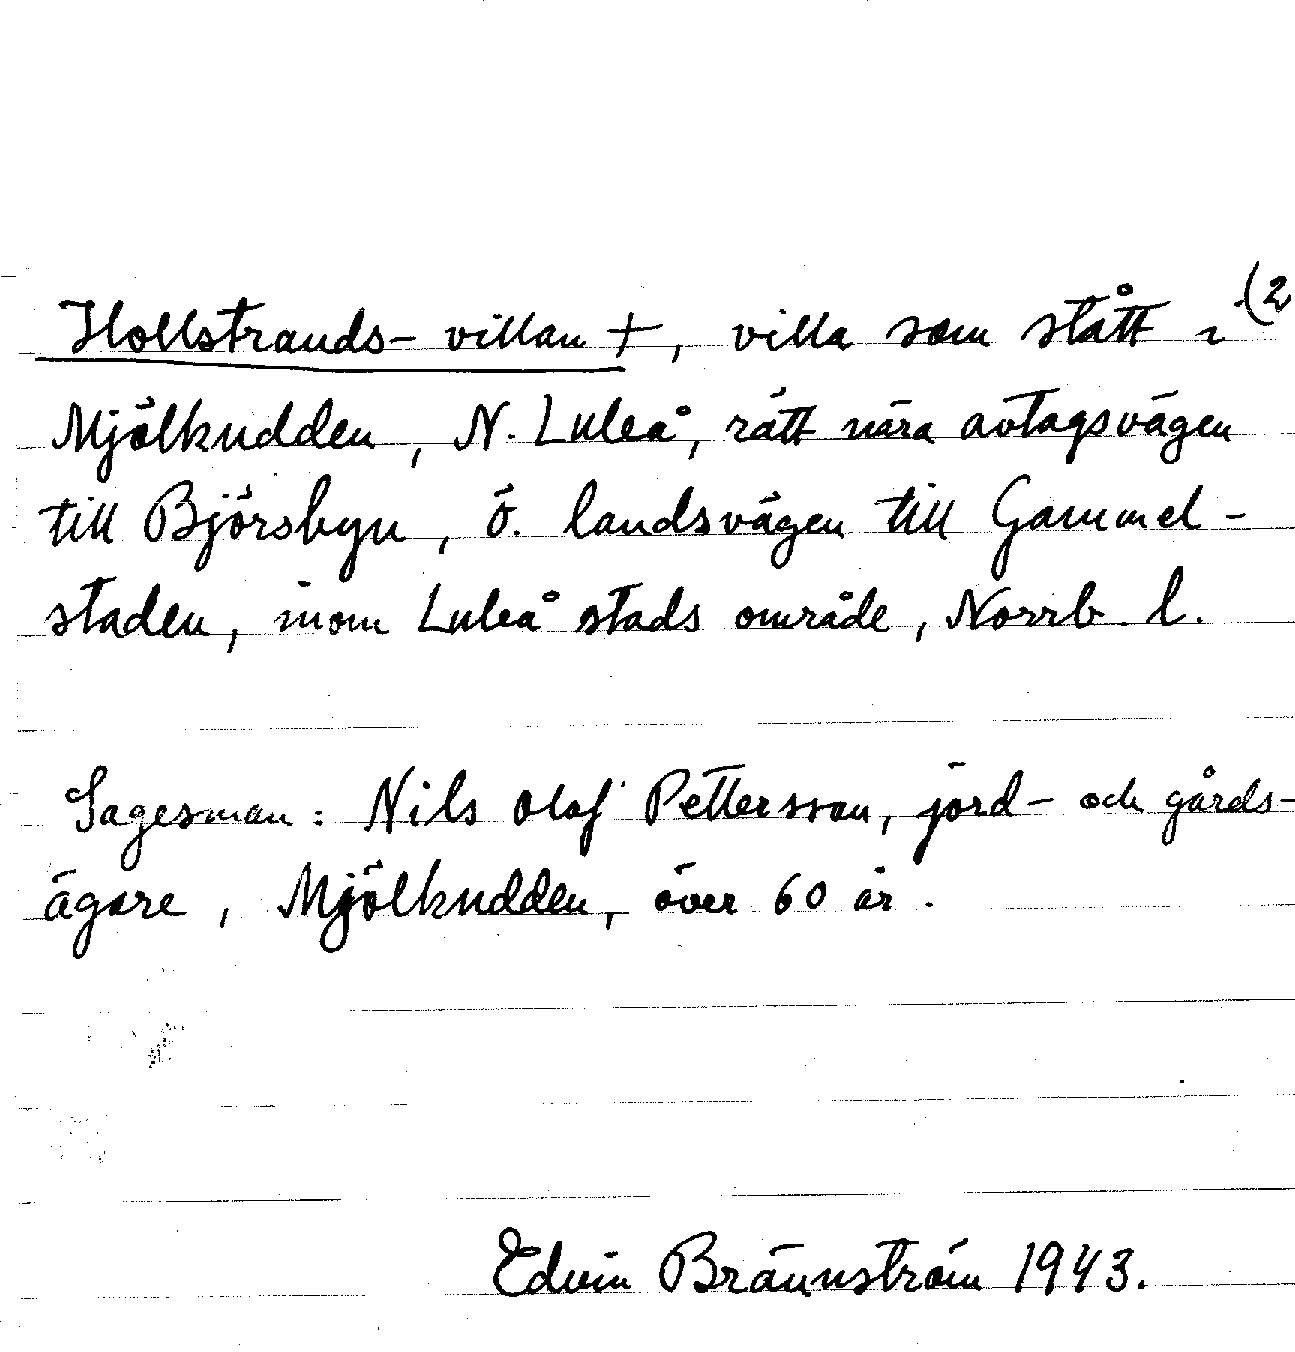 Hollstrands-villan +, villa som stått i (2
Mjölkudden, N. Luleå, rätt nära avtagsvägen
till Björsbyn, ö. landsvägen till Gammel-
staden, inom Luleå stads område, Norrb. l.
Sagesman: Nils Olof Pettersson, jord- och gårds-
ägare, Mjölkudden, över 60 år.
Edvin Brännström 1943.